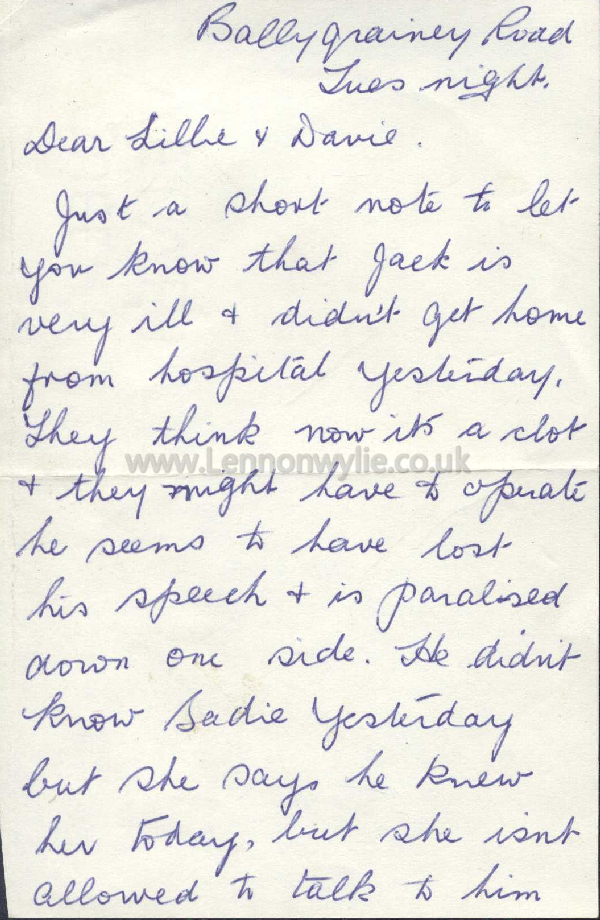 Ballygrainey Road
Tues night.
Dear Lillie & Davie.
Just a short note to let
you know that Jack is
very ill & didn't get home
from hospital yesterday.
They think now it's a clot
www.Lennonwylie.co.uk
& they might have to operate
he seems to have lost
his speech & is paralised
down one side. He didn't
know Sadie Yesterday
but she says he knew
her today, but she isnt
allowed to talk to him